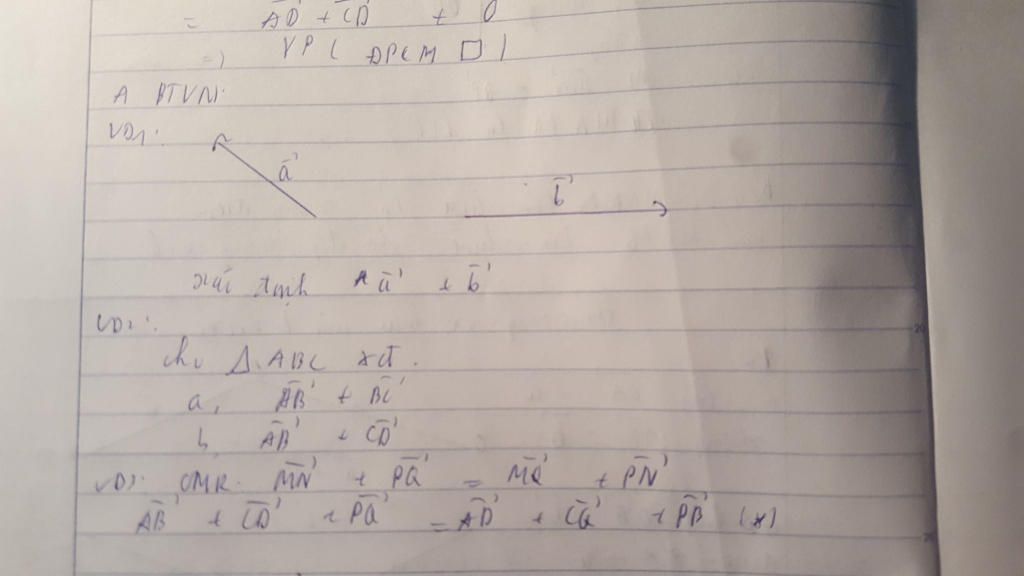 = AD + CD + 0
=) VP ( ĐPCM □ )
A BTVN:
VD1:
a
b
xác định a + b
VD2:
cho Δ ABC xđ.
a, AB + BC
b, AB + CD
VD3: CMR: MN + PQ = MQ + PN
AB + CD + PQ = AD + CQ + PB (*)